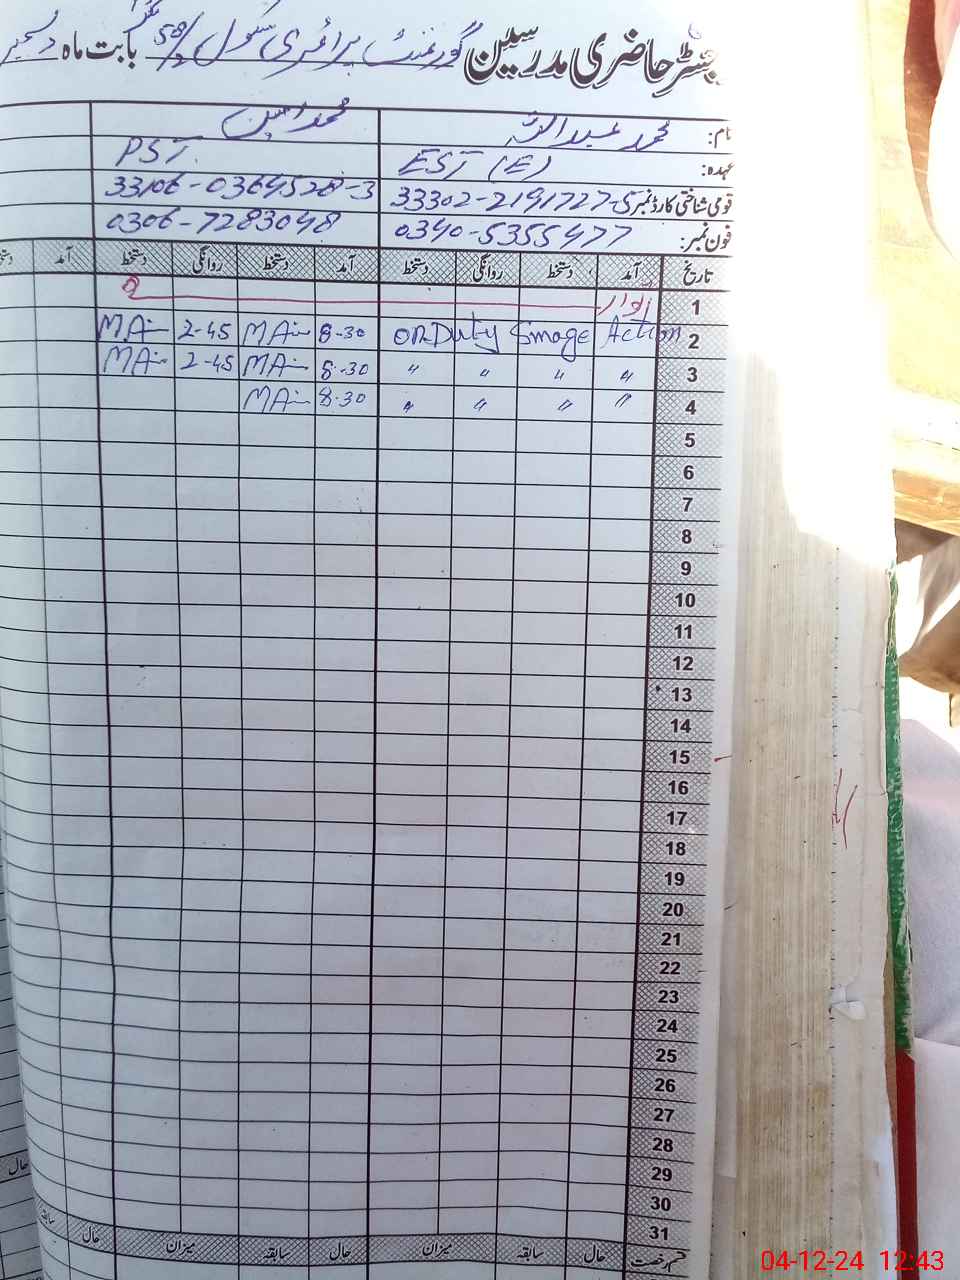 رجسٹر حاضری مدرسین گورنمنٹ پرائمری سکول 58/ بابت ماہ دسمبر
نام: محمد عبداللہ محمد امین
عہدہ: EST (E) PST
قومی شناختی کارڈ نمبر 33302-2191727-5 33106-0364528-3
فون نمبر: 0340-5355477 0306-7283048
تاریخ آمد دستخط روانگی دستخط آمد دستخط روانگی دستخط آمد
1 اتوار
2 on Duty Smage Action 8-30 MA 2-45 MA
3 " " " " 8-30 MA 2-45 MA
4 " " " " 8-30 MA
5
6
7
8
9
10
11
12
13
14
15
16
17
18
19
20
21
22
23
24
25
26
27
28
29
30
31
قسم رخصت حال سابقہ میزان حال سابقہ میزان حال سابقہ
حال
04-12-24 12:43